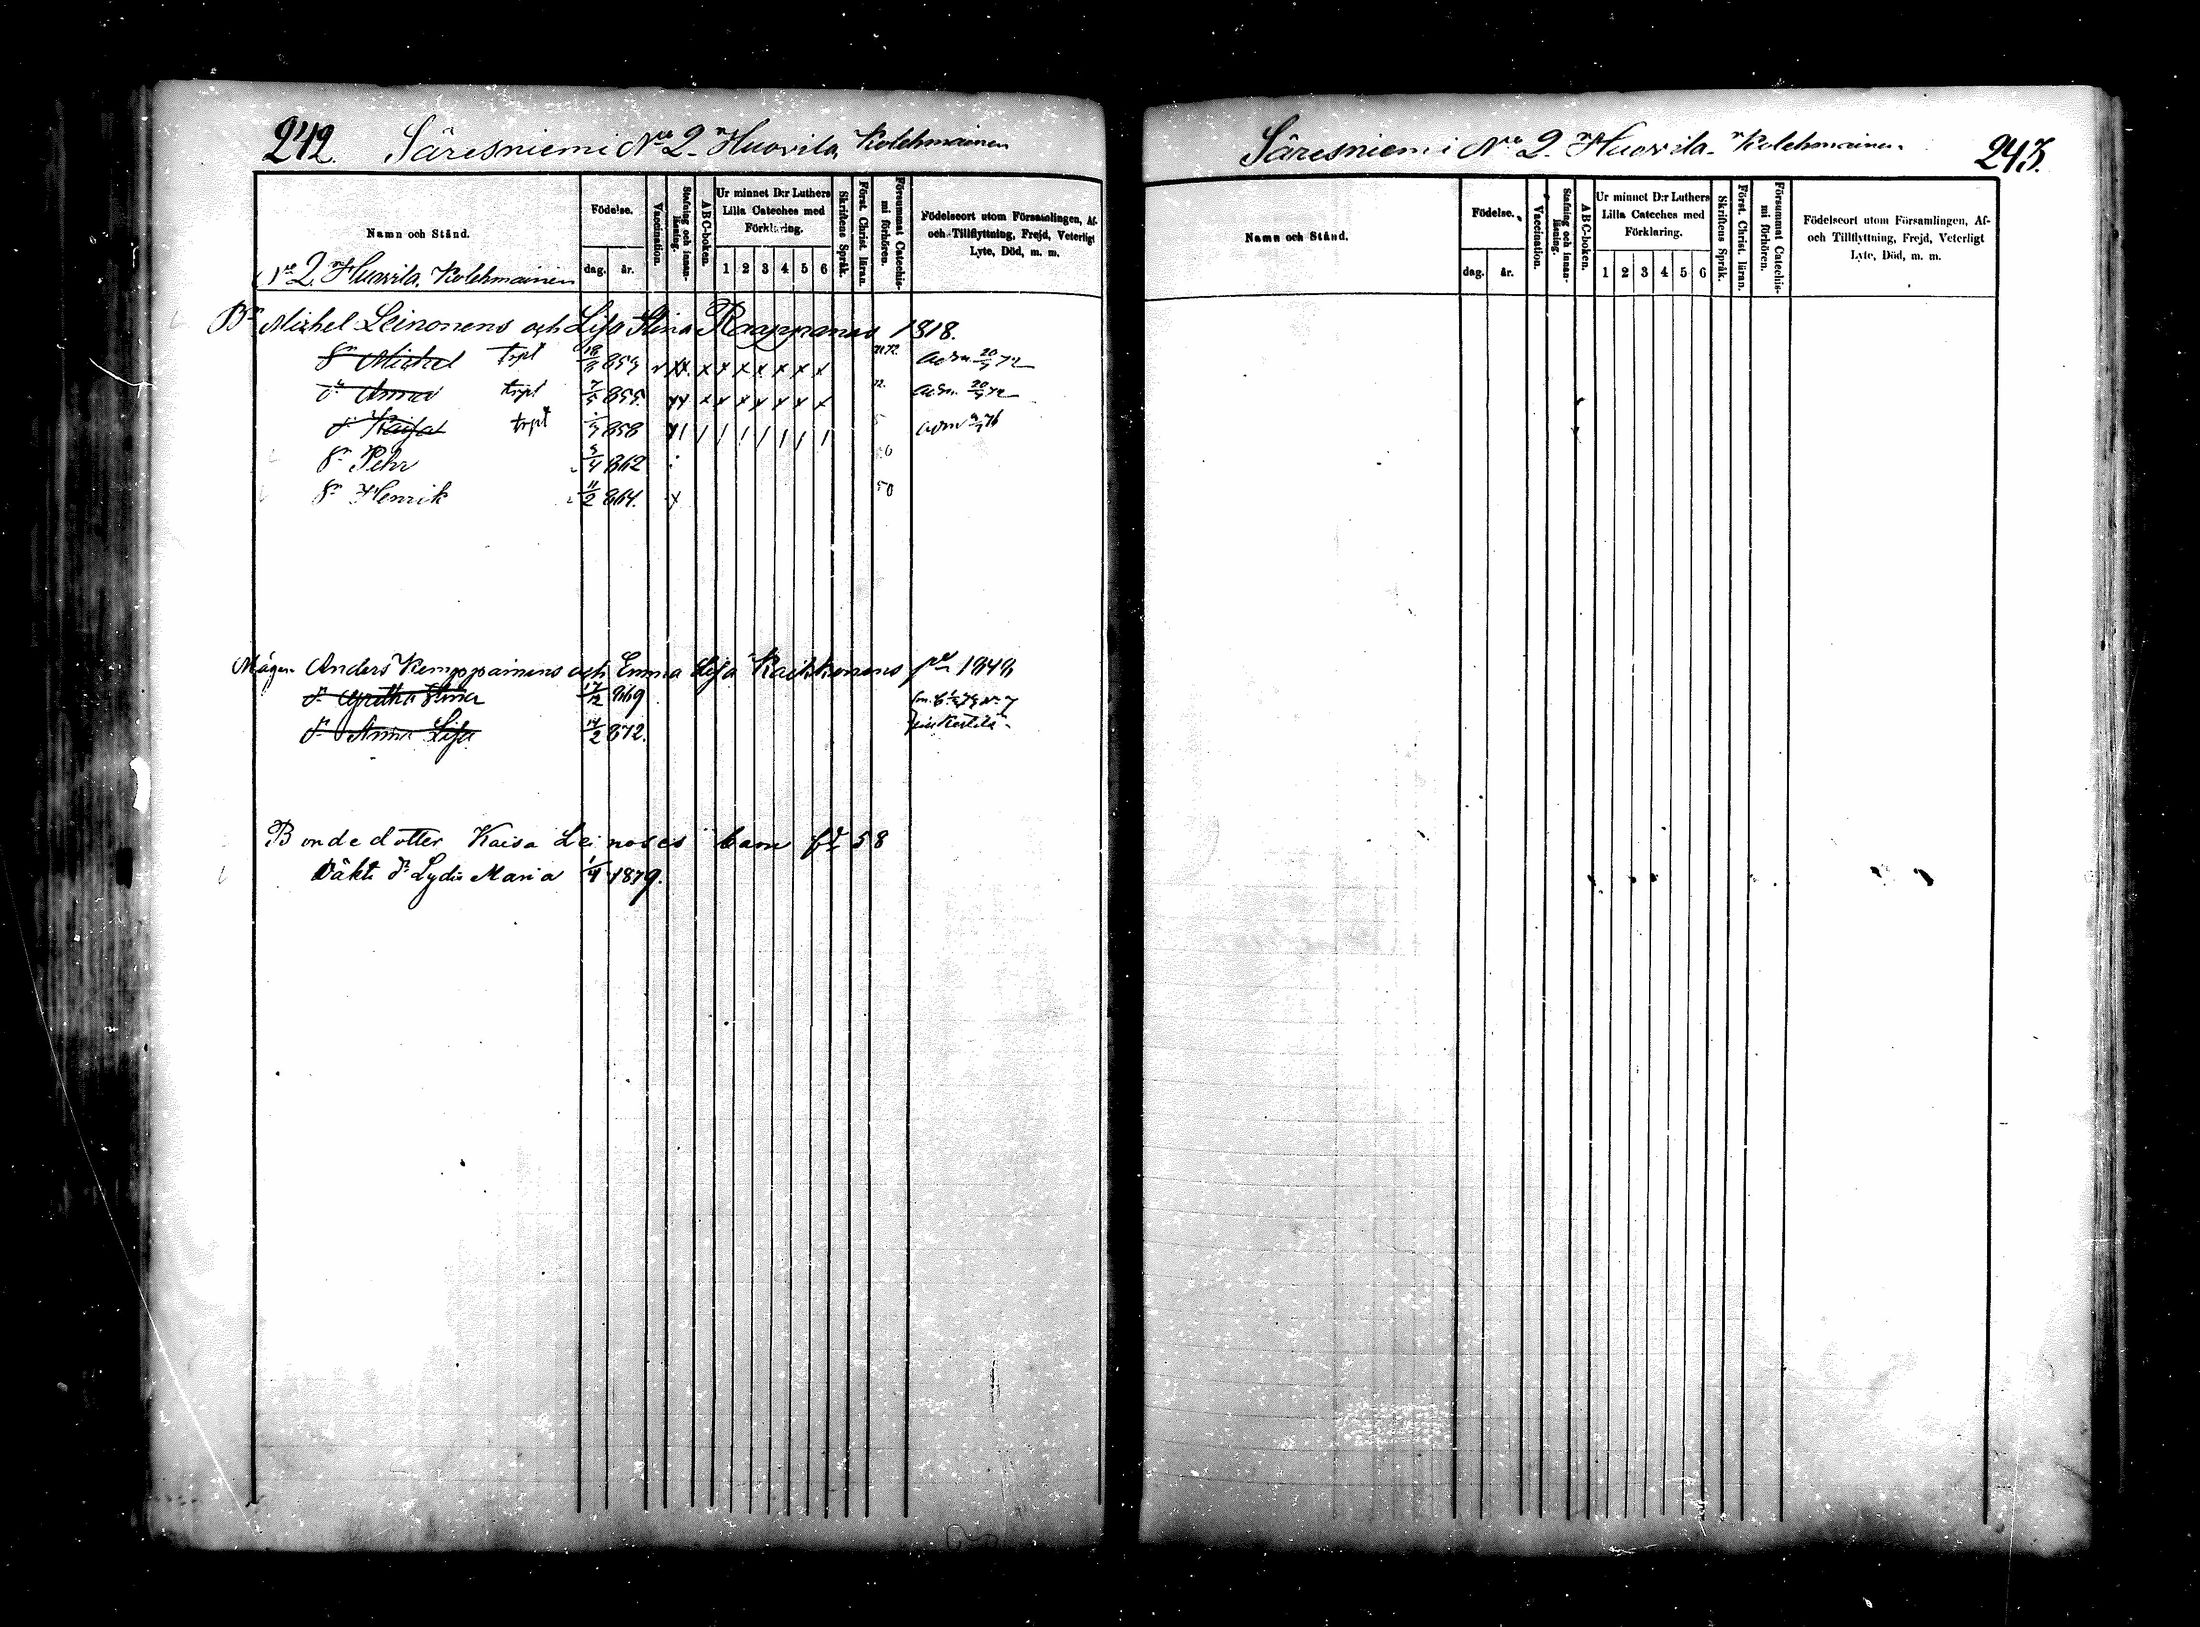 242. Säresniemi No 2. Huovila, Kolehmainen
Namn och Stånd.
Födelse.
dag. år.
Vaccination.
Stafning och innan-läsning.
ABC-boken.
Ur minnet D:r Luthers Lilla Cateches med Förklaring.
1 2 3 4 5 6
Skriftens Språk.
Först. Christ. läran.
Försummat Catechis-mi förhören.
Födelseort utom Församlingen, Af- och Tillflyttning, Frejd, Veterligt Lyte, Död, m. m.
No 2. Huovila, Kolehmainen
Bn Michel Leinonens och Lisa Stina Raappanas 1818.
Sn Michel 18/8 853 v xx x x x x x x x 72 adm 20/72
dr Anna 7/5 855. xx x x x x x x x 72. adm. 20/72
dr Kaisa 858 x / / / / / / / / adm 76
Sn Pehr 5/4 862
Sn Henrik 11/2 864. x 50
Mågen Anders Kemppainens och Emma Lisa Kaikkonens 1848
dr Gretha Stina 17/12 869
dr Anna Lisa 14/2 872.
Bondedotter Kaisa Leinoses barn fd 58
Oäkti dr Lydia Maria 1/4 1879.
Säresniemi No 2. Huovila. Kolehmainen. 243.
Namn och Stånd.
Födelse.
dag. år.
Vaccination.
Stafning och innan-läsning.
ABC-boken.
Ur minnet D:r Luthers Lilla Cateches med Förklaring.
1 2 3 4 5 6
Skriftens Språk.
Först. Christ. läran.
Försummat Catechis-mi förhören.
Födelseort utom Församlingen, Af- och Tillflyttning, Frejd, Veterligt Lyte, Död, m. m.